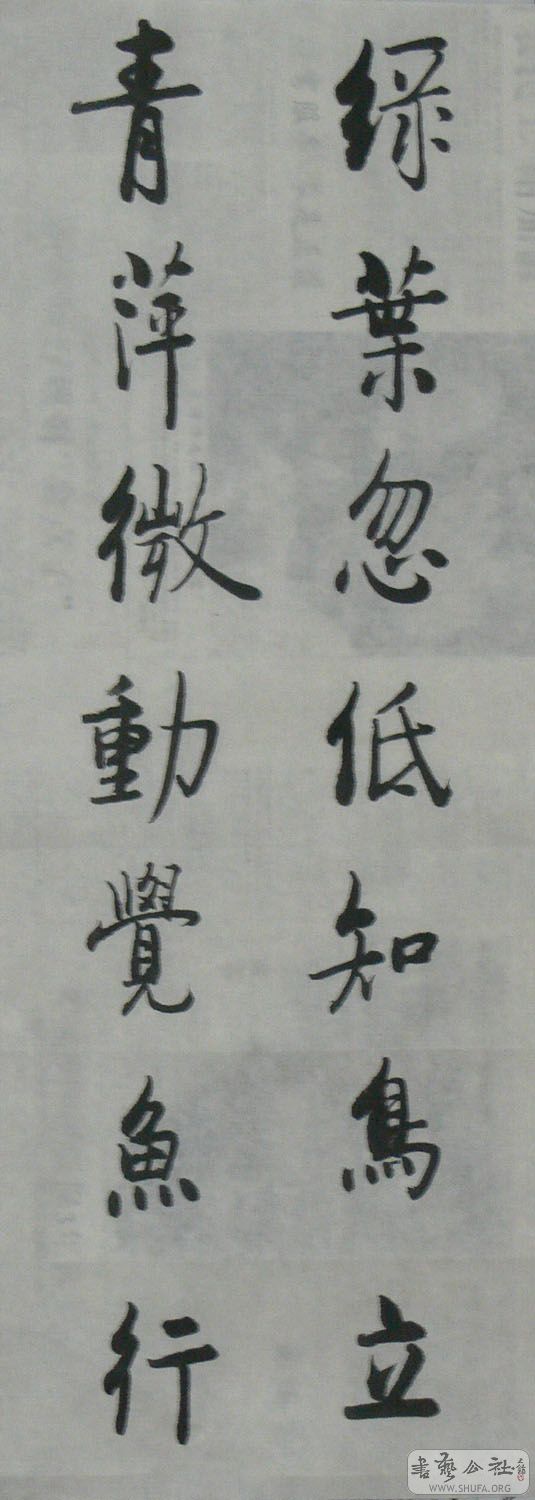 綠葉忽低知鳥立
青萍微動覺魚行
書藝公社
WWW.SHUFA.ORG